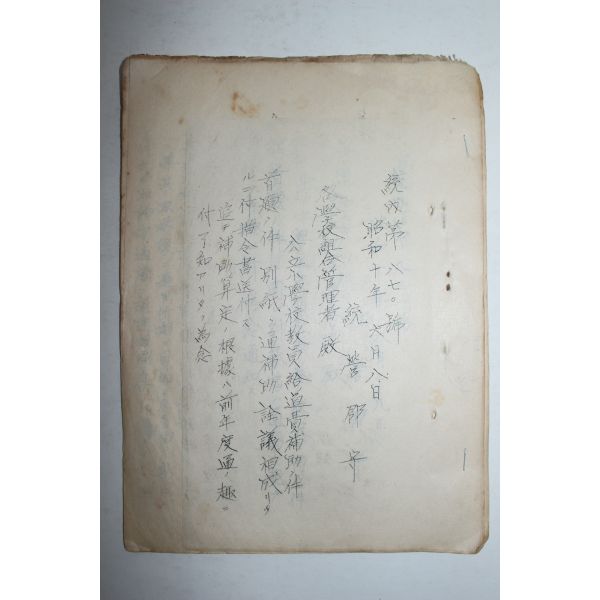 統內第八七〇號
昭和十年七月八日
統營郡守
各學校組合管理者殿
公立小學校敎員給與費補助ノ件
首題ノ件別紙ノ通補助詮議相成リタ
ルニ付指令書送付ス
追テ補助算定ノ根據ハ前年度通ノ趣ニ
付了知アリタク爲念